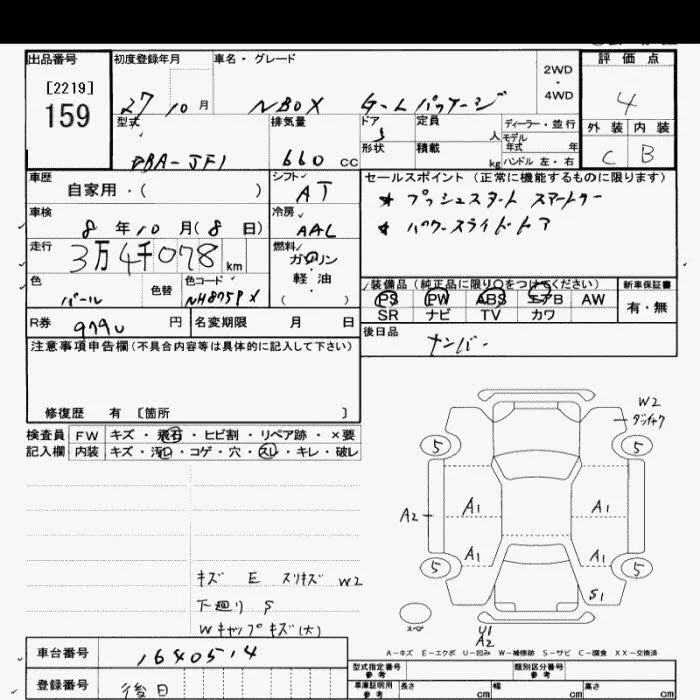 出品番号 初度登録年月 車名・グレード 評価点
[2219]
159
27 10月 NBOX G-Lパッケージ 2WD・4WD 4
型式 排気量 ドア 定員 人 ディーラー・並行 外装 内装
DBA-JF1 660 cc 5 形状 積載 kg モデル年式 年 ハンドル 左・右 C B
車歴 自家用・( ) シフト AT
セールスポイント (正常に機能するものに限ります)
* プッシュスタート スマートキー
* パワースライドドア
車検 8年10月(8日) 冷房 AAC
走行 3万4千078 km 燃料 ガソリン・軽油 ( )
色 パール 色替 色コード NH875P X
装備品 (純正品に限り○をつけてください) 新車保証書
PS PW ABS エアB AW 有・無
SR ナビ TV カワ
R券 9790 円 名変期限 月 日
後日品 ナンバー
注意事項申告欄(不具合内容等は具体的に記入して下さい)
修復歴 有 [箇所 ]
検査員 FW キズ・飛石・ヒビ割・リペア跡・×要
記入欄 内装 キズ・汚れ・コゲ・穴・スレ・キレ・破レ
W2
5 5
A2 A1 A1
A1 A1
5 5
S1
スペア
U1
A2
キズ E スリキズ W2
下廻り S
Wキャップキズ(大)
A-キズ E-エクボ U-凹み W-補修跡 S-サビ C-腐食 XX-交換済
車台番号 1640514
登録番号 後日
型式指定番号 参考 類別区分番号 参考
車庫証明用 参考 長さ cm 幅 cm 高さ cm